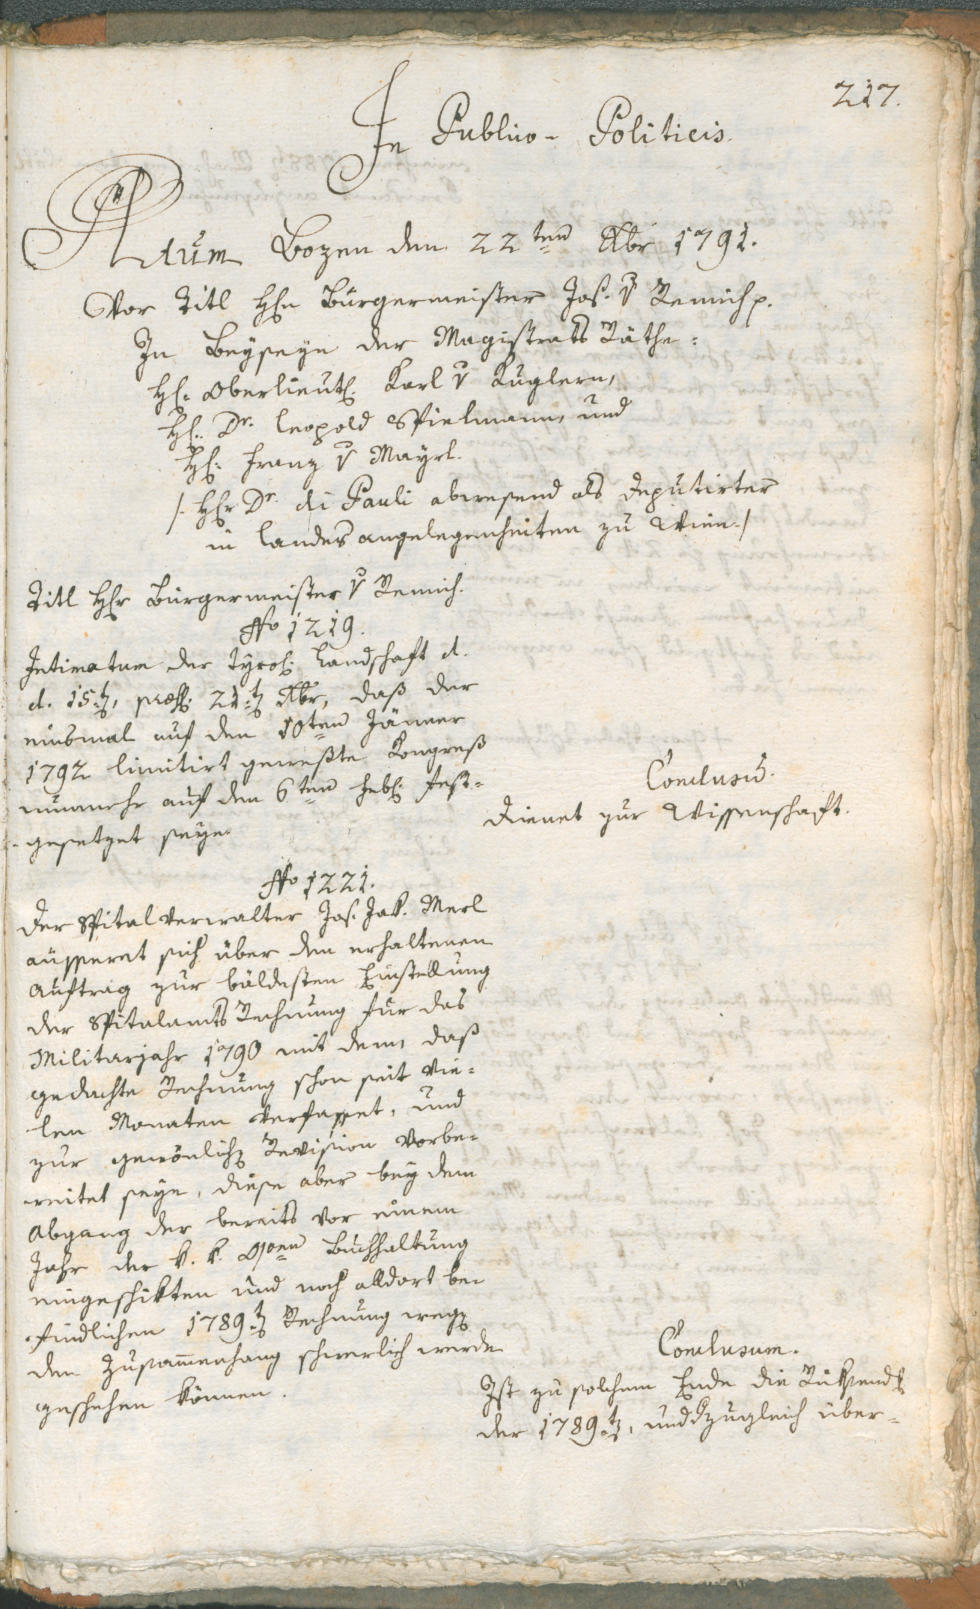 217.
In Publico-Politicis.
Actum Bozen den 22ten Xbr 1791.
Vor Titl Hhn Bürgermeister Jos. v Remich p.
In Beyseyn der Magistrats Räthe:
Hh: Oberlieut: Karl v Kuglern,
Hh: Dr. Leopold Spielmann, und
Hh: Franz v Mayrl.
/: Hhr Dr di Pauli abwesend als deputirter
in Landes angelegenheiten zu Wien :/
Titl Hhr Bürgermeister v Remich.
No 1219.
Intimatum der Tyrol: Landschaft d.
d. 15t, præs: 21t Xbr, daß der
einsmal auf den 10ten Jänner
1792 limitirt geweßte Kongreß
nunmehr auf den 6ten Feb: fest-
gesetzet seye.
Conclusū.
Dienet zur Wissenschaft.
No 1221.
Der Spitalverwalter Jos. Jak. Merl
äusseret sich über den erhaltenen
Auftrag zur bäldesten Einstellung
der Spitalamts Rechnung für das
Militarjahr 1790 mit dem, daß
gedachte Rechnung schon seit vie-
len Monaten verfasset, und
zur gewönlich Revision vorbe-
reitet seye, diese aber bey dem
Abgang der bereits vor einem
Jahr der k. k. Buchhaltung
eingeschikten und noch alldort be-
findlichen 1789t Rechnung weg
den Zusam̄enhang schwerlich werde
geschehen können.
Conclusum.
Ist zu solchem Ende die Rüksend
der 1789t, und zugleich über-